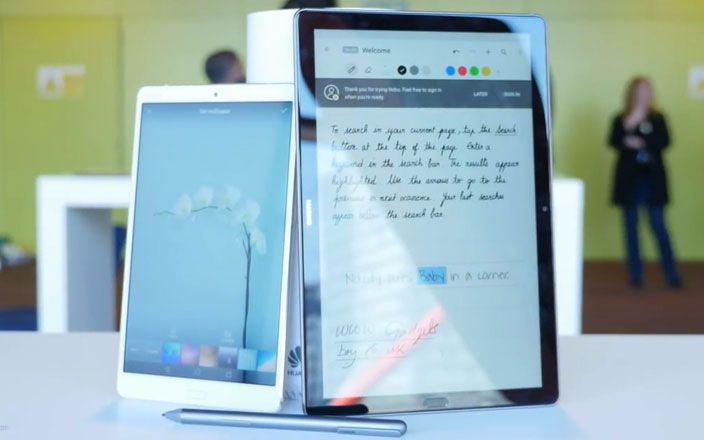 Set wallpaper
Welcome
Thank you for trying Nebo. Feel free to sign in
when you're ready.
LATER
SIGN IN
To search in your current page, tap the search
button at the top of the page. Enter a
keyword in the search bar. The results appear
highlighted. Use the arrows to go to the
previous or next occurence. Your last searches
appear below the search bar.
Nobody puts Baby in a corner.
WOW Gadgets
buy.co.uk
HUAWEI